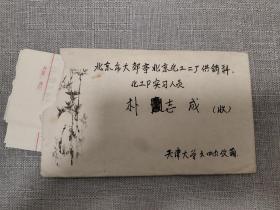 北京市大郊亭北京化工二厂供销科
化工P实习人员
朴志成（收）
天津大学